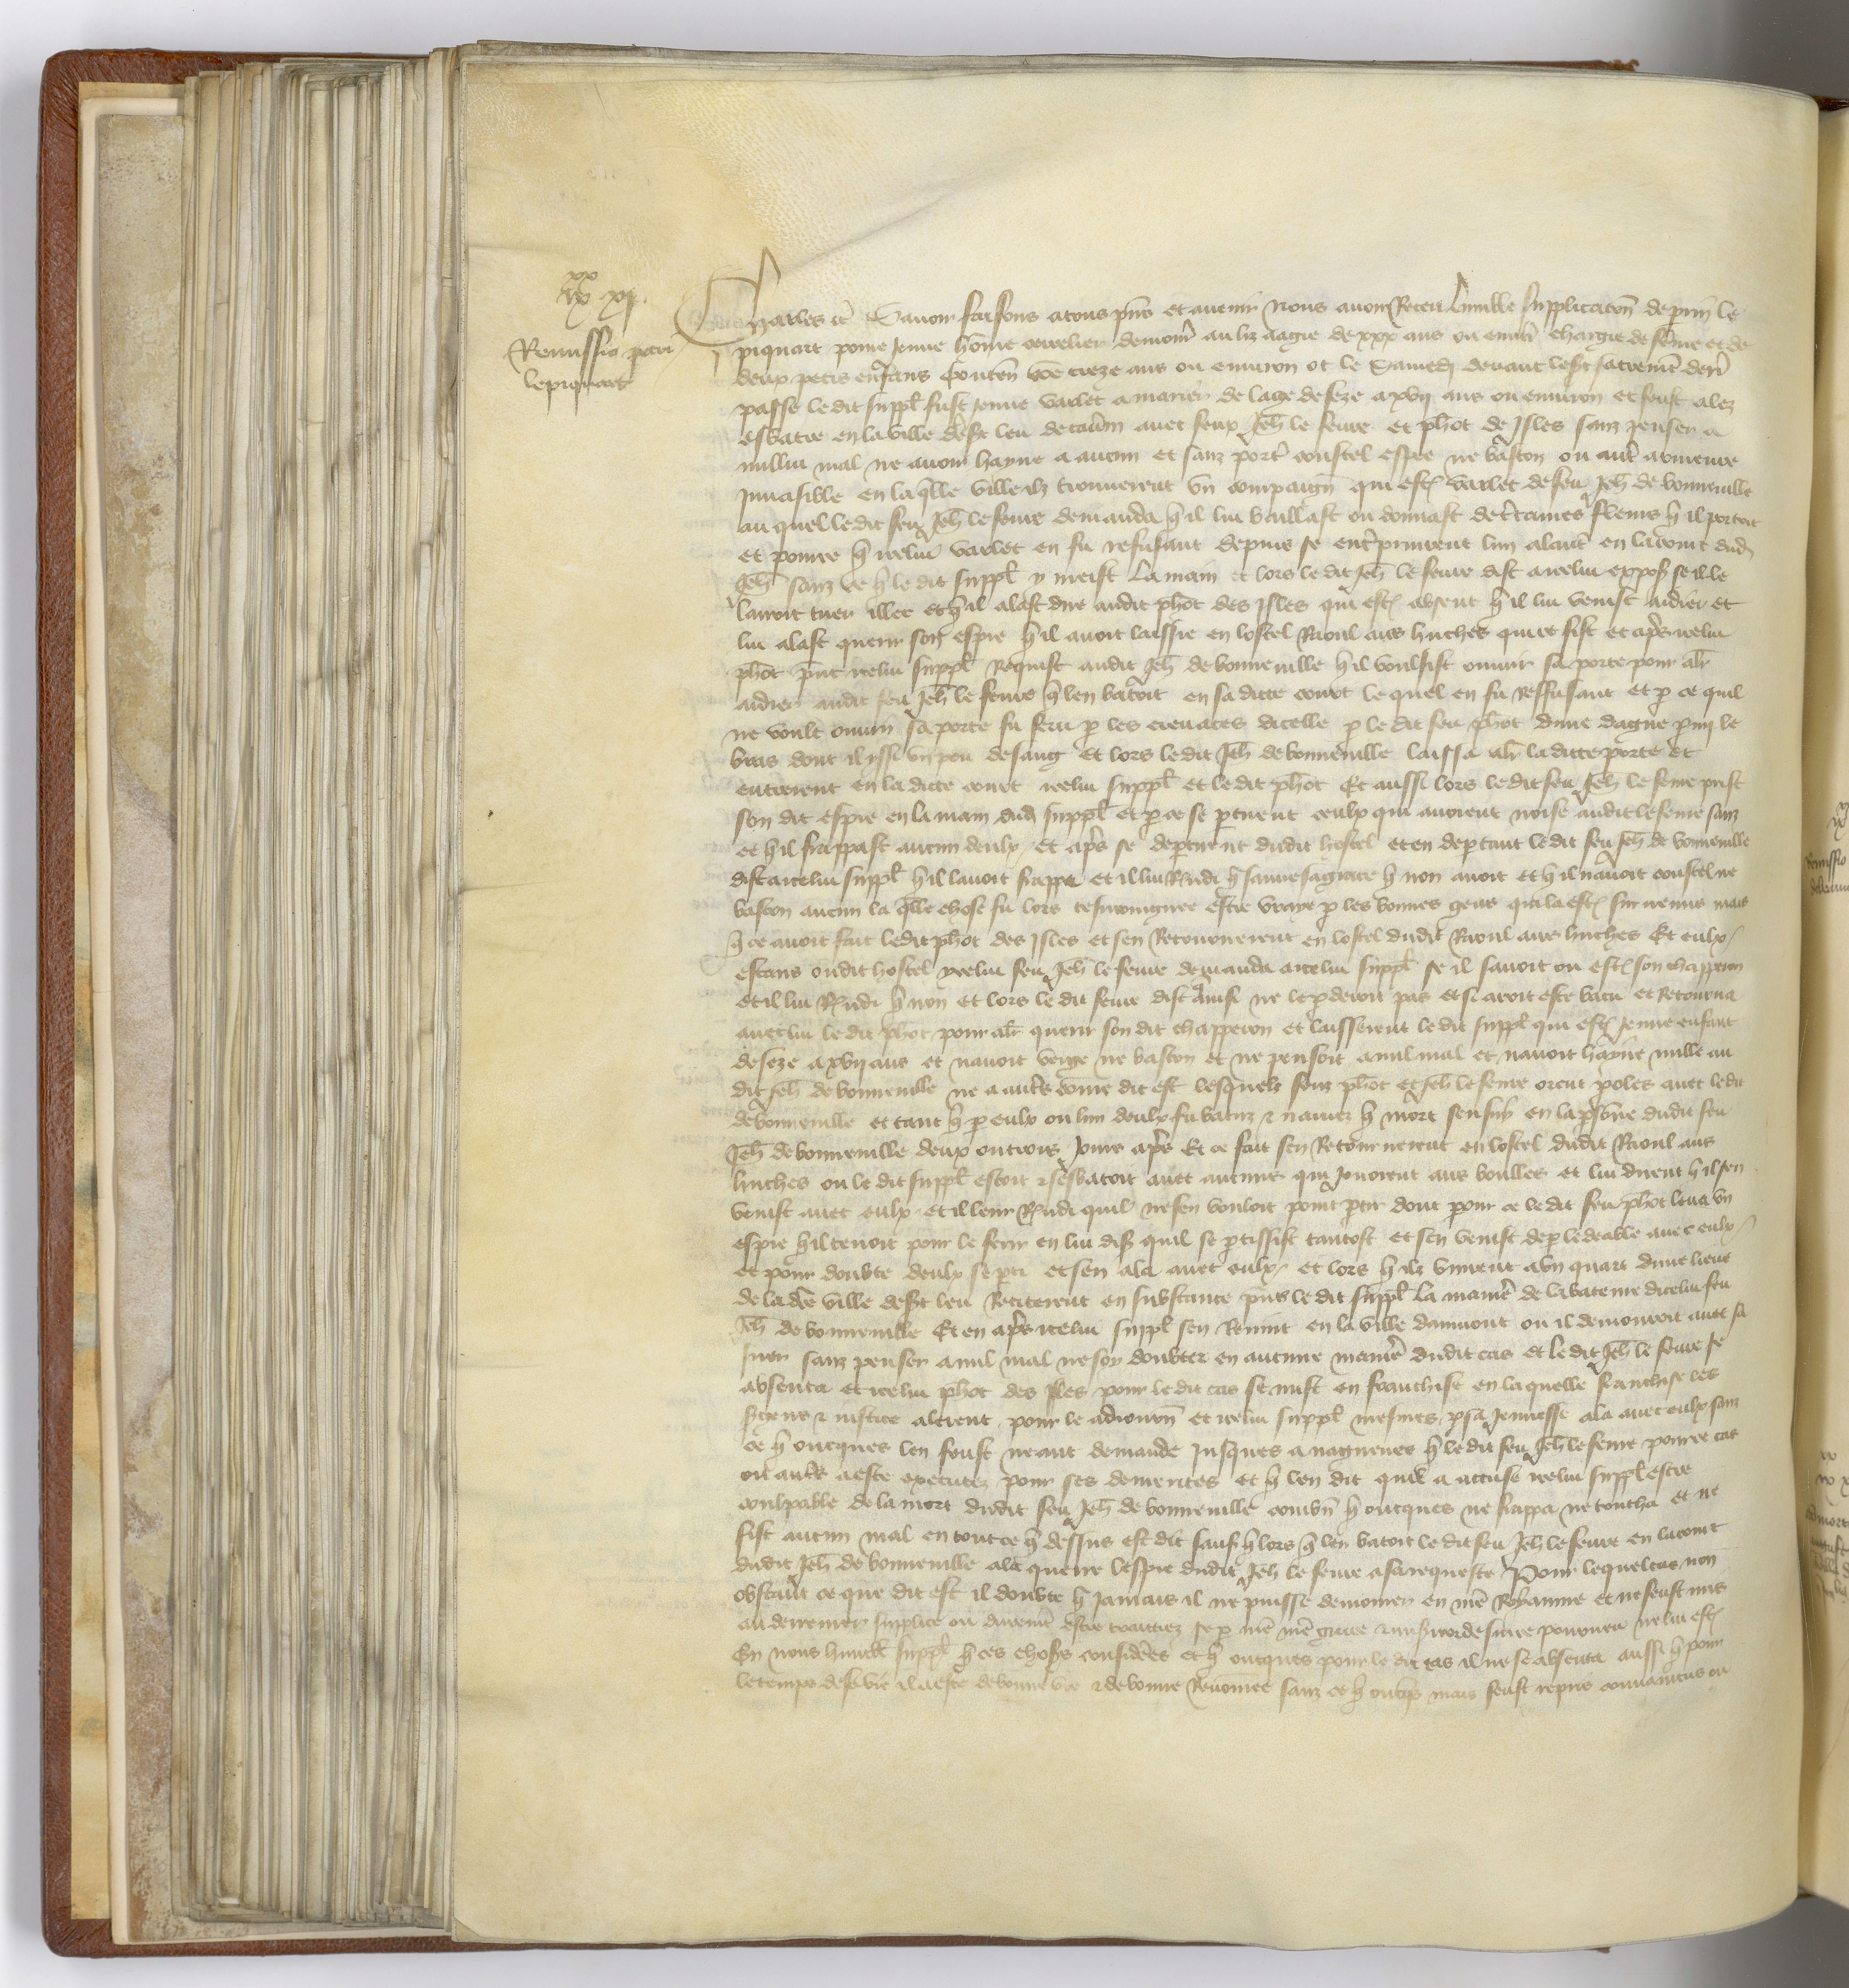 xx
ix xj
Remissio petri
lepiquart
Charles etc Savoir faisons a tous pns et avenir Nous avoir Receu lumble supplicacon de perrin le
piquart povre jeune home cervelier demour au liz aagie de xxx ans ou envir chargie de feme et de
deux petis enfans contenant coe treze ans ou environ ot le Samedi devant le st sacrement derr
passe le dit suppl fust jeune varlet a marier de laage de seze a xvij ans ou environ et feust alez
esbatre en la ville de st leu de avec feux Jeh le fevre et phot de Isles sanz penser a
nullui mal ne avoir hayne a aucun et sanz port coustel espee ne baston ou aut armeure
Invasible en laqlle ville ilz trouverent un compaign qui est varlet de feu Jeh de bonneuille
au quel ledit feu Jeh le fevre demanda q il lui baillast ou donnast de ctaines fleurs q il portoit
et pource q icelui varlet en fu refusant depuis se entprinrent lun alaut en la court dud
Jeh sanz ce q le dit suppl y meist la main et lors le dit Jeh le fevre dist a icelui expos se il le
lairoit tuer illec et q il alast dire audit phot des Isles qui est absent q il lui venist aidier et
lui alast querir son espee q il avoit laissie en lostel Raoul aus huches qui ce fist et aps icelui
phot pnt icelui suppl Requist audit Jeh de bonneuille q il voulsist ouvrir sa porte pour alr
aidier audit feu Jeh le fevre q len batoit en sa dicte court le quel en fu reffusant et p ce quil
ne voult ouvrir sa porte fu feru p les crevaces dicelle p le dit feu phot dune dague pmy le
bras dont il yssi un pou de sang et lors ledit Jeh de bonneuille laissa alr la dicte porte et
entrerent en la dicte court icelui suppl et le dit phot Et aussi lors le dit feu Jeh le fevre prist
son dit espee en la main dud suppl et p ce se ptirent ceulx qui avoient noise audit le fevre sanz
ce q il frappast aucun deulx et aps se deptirent dudit hostel et en deptant le dit feu Jeh de bonneuille
dist a icelui suppl q il lavoit frappe et il lui Rndi q sauve sa grace q non avoit et q il navoit coustel ne
baston aucun la qlle chose fu lors tesmoignee estre vraye p les bonnes gens qui la est survenus mais
q ce avoit fait ledit phot des Isles et sen Retournerent en lostel dudit Raoul aus huches Et eulx
estans oudit hostel icelui feu Jeh le fevre demanda a icelui suppl se il savoit ou est son chapperon
et il lui Rndi q non et lors le dit fevre dist ainsi ne le pderoit pas et si avoit este batu et Retourna
avec lui le dit phot pour alr querir son dit chapperon et laisserent le dit suppl qui est jeune enfant
de seze a xvij ans et navoit verge ne baston et ne pensoit a nul mal et navoit hayne nulle au
dit Jeh de bonneuille ne a autre come dit est lesquelz feux phot et Jeh le fevre orent poles avec ledit
de bonneuille et tant q p eulx ou lun deulx fu batuz & navrez q mort sensuy en la psone dudit feu
Jeh de bonneuille deux ou trois jours aps Et ce fait sen Retournerent en lostel dudit Raoul aus
huches ou le dit suppl estoit & sesbatoit avec aucuns qui Jouoient aus boulles et lui dirent q il sen
venist avec eulx et il leur Rndi quil ne sen vouloit point ptir dont pour ce le dit feu phot leva un
espee q il tenoit pour le ferir en lui dis quil se ptissist tantost et sen venist de p le deable avec eulx
et pour doubte deulx se pti et sen ala avec eulx et lors q ilz vinrent a un quart dune lieue
de la dce ville de st leu Reciterent en substance pns le dit suppl la manie de la bateure dicelui feu
Jeh de bonneuille Et en aps icelui suppl sen Revint en la ville daumont ou il demouroit avec sa
suer sanz penser a nul mal ne soy doubter en aucune manie dudit cas et le dit Jeh le fevre se
absenta et icelui phot des Isles pour le dit cas se mist en franchise en laquelle franchise les
sgens & justice alerent pour le adiourn et icelui suppl mesmes p sa Jeunesse ala avec eulx sanz
ce q oncques len feust neant demande jusques a nagueires q le dit feu Jeh le fevre pour ce cas
ou autre a este executez pour ses demerites et q len dit quil a accuse icelui suppl estre
coulpable de la mort dudit feu Jeh de bonneuille combn q oncques ne frappa ne toucha et ne
fist aucun mal en tout ce q dessus est dit sauf q lors q len batoit le dit feu Jeh le fevre en la court
dudit Jeh de bonneuille ala querre lespee dudit Jeh le fevre a sa requeste Pour lequel cas non
obstant ce que dit est il doubte q jamais il ne puisse demourer en nre Royaume et ne feust mis
au derrenier supplice ou durement estre traictiez se p nre grace & misicorde sur ce pourveu ne lui est
En nous humble suppl q ces choses considees et q oncques pour le dit cas il ne se absenta aussi q pour
le temps de sa vie il a este de bonne vie & de bonne Renomee sanz ce q oncqs mais feust repris convaincus ou